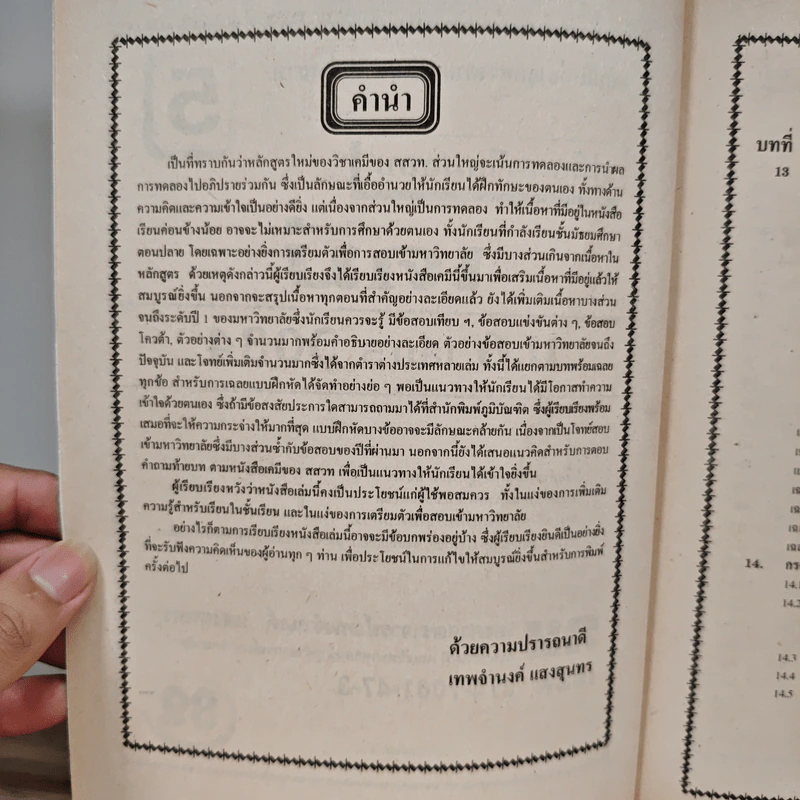 คำนำ
เป็นที่ทราบกันว่าหลักสูตรใหม่ของวิชาเคมีของ สสวท. ส่วนใหญ่จะเน้นการทดลองและการนำผล
การทดลองไปอภิปรายร่วมกัน ซึ่งเป็นลักษณะที่เอื้ออำนวยให้นักเรียนได้ฝึกทักษะของตนเอง ทั้งทางด้าน
ความคิดและความเข้าใจเป็นอย่างดียิ่ง แต่เนื่องจากส่วนใหญ่เป็นการทดลอง ทำให้เนื้อหาที่มีอยู่ในหนังสือ
เรียนค่อนข้างน้อย อาจจะไม่เหมาะสำหรับการศึกษาด้วยตนเอง ทั้งนักเรียนที่กำลังเรียนชั้นมัธยมศึกษา
ตอนปลาย โดยเฉพาะอย่างยิ่งการเตรียมตัวเพื่อการสอบเข้ามหาวิทยาลัย ซึ่งมีบางส่วนเกินจากเนื้อหาใน
หลักสูตร ด้วยเหตุดังกล่าวนี้ผู้เรียบเรียงจึงได้เรียบเรียงหนังสือเคมีนี้ขึ้นมาเพื่อเสริมเนื้อหาที่มีอยู่แล้วให้
สมบูรณ์ยิ่งขึ้น นอกจากจะสรุปเนื้อหาทุกตอนที่สำคัญอย่างละเอียดแล้ว ยังได้เพิ่มเติมเนื้อหาบางส่วน
จนถึงระดับปี 1 ของมหาวิทยาลัยซึ่งนักเรียนควรจะรู้ มีข้อสอบเทียบ ฯ, ข้อสอบแข่งขันต่าง ๆ, ข้อสอบ
โควต้า, ตัวอย่างต่าง ๆ จำนวนมากพร้อมคำอธิบายอย่างละเอียด ตัวอย่างข้อสอบเข้ามหาวิทยาลัยจนถึง
ปัจจุบัน และโจทย์เพิ่มเติมจำนวนมากซึ่งได้จากตำราต่างประเทศหลายเล่ม ทั้งนี้ได้แยกตามบทพร้อมเฉลย
ทุกข้อ สำหรับการเฉลยแบบฝึกหัดได้จัดทำอย่างย่อ ๆ พอเป็นแนวทางให้นักเรียนได้มีโอกาสทำความ
เข้าใจด้วยตนเอง ซึ่งถ้ามีข้อสงสัยประการใดสามารถถามมาได้ที่สำนักพิมพ์ภูมิบัณฑิต ซึ่งผู้เรียบเรียงพร้อม
เสมอที่จะให้ความกระจ่างให้มากที่สุด แบบฝึกหัดบางข้ออาจจะมีลักษณะคล้ายกัน เนื่องจากเป็นโจทย์สอบ
เข้ามหาวิทยาลัยซึ่งมีบางส่วนซ้ำกับข้อสอบของปีที่ผ่านมา นอกจากนี้ยังได้เสนอแนวคิดสำหรับการตอบ
คำถามท้ายบท ตามหนังสือเคมีของ สสวท เพื่อเป็นแนวทางให้นักเรียนได้เข้าใจยิ่งขึ้น
ผู้เรียบเรียงหวังว่าหนังสือเล่มนี้คงเป็นประโยชน์แก่ผู้ใช้พอสมควร ทั้งในแง่ของการเพิ่มเติม
ความรู้สำหรับเรียนในชั้นเรียน และในแง่ของการเตรียมตัวเพื่อสอบเข้ามหาวิทยาลัย
อย่างไรก็ตามการเรียบเรียงหนังสือเล่มนี้อาจจะมีข้อบกพร่องอยู่บ้าง ซึ่งผู้เรียบเรียงยินดีเป็นอย่างยิ่ง
ที่จะรับฟังความคิดเห็นของผู้อ่านทุก ๆ ท่าน เพื่อประโยชน์ในการแก้ไขให้สมบูรณ์ยิ่งขึ้นสำหรับการพิมพ์
ครั้งต่อไป
ด้วยความปรารถนาดี
เทพจำนงค์ แสงสุนทร
บทที่
13
14.
14.1
14.2
14.3
14.4
14.5